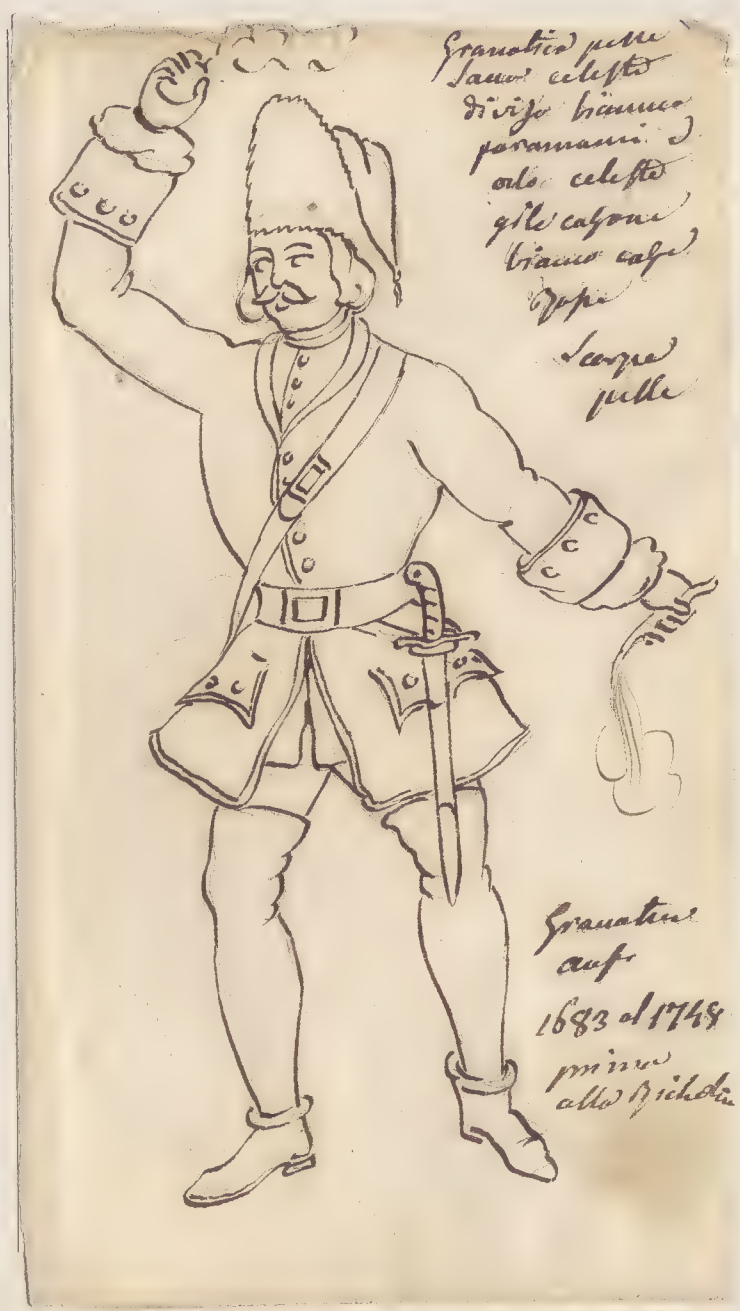 Granatiere pelle
celeste
divisa bianca
paramani e
orlo celeste
gilè calzone
bianco calze

Scarpe
pelle
Granatiere
1683 al 1748
prima
alla